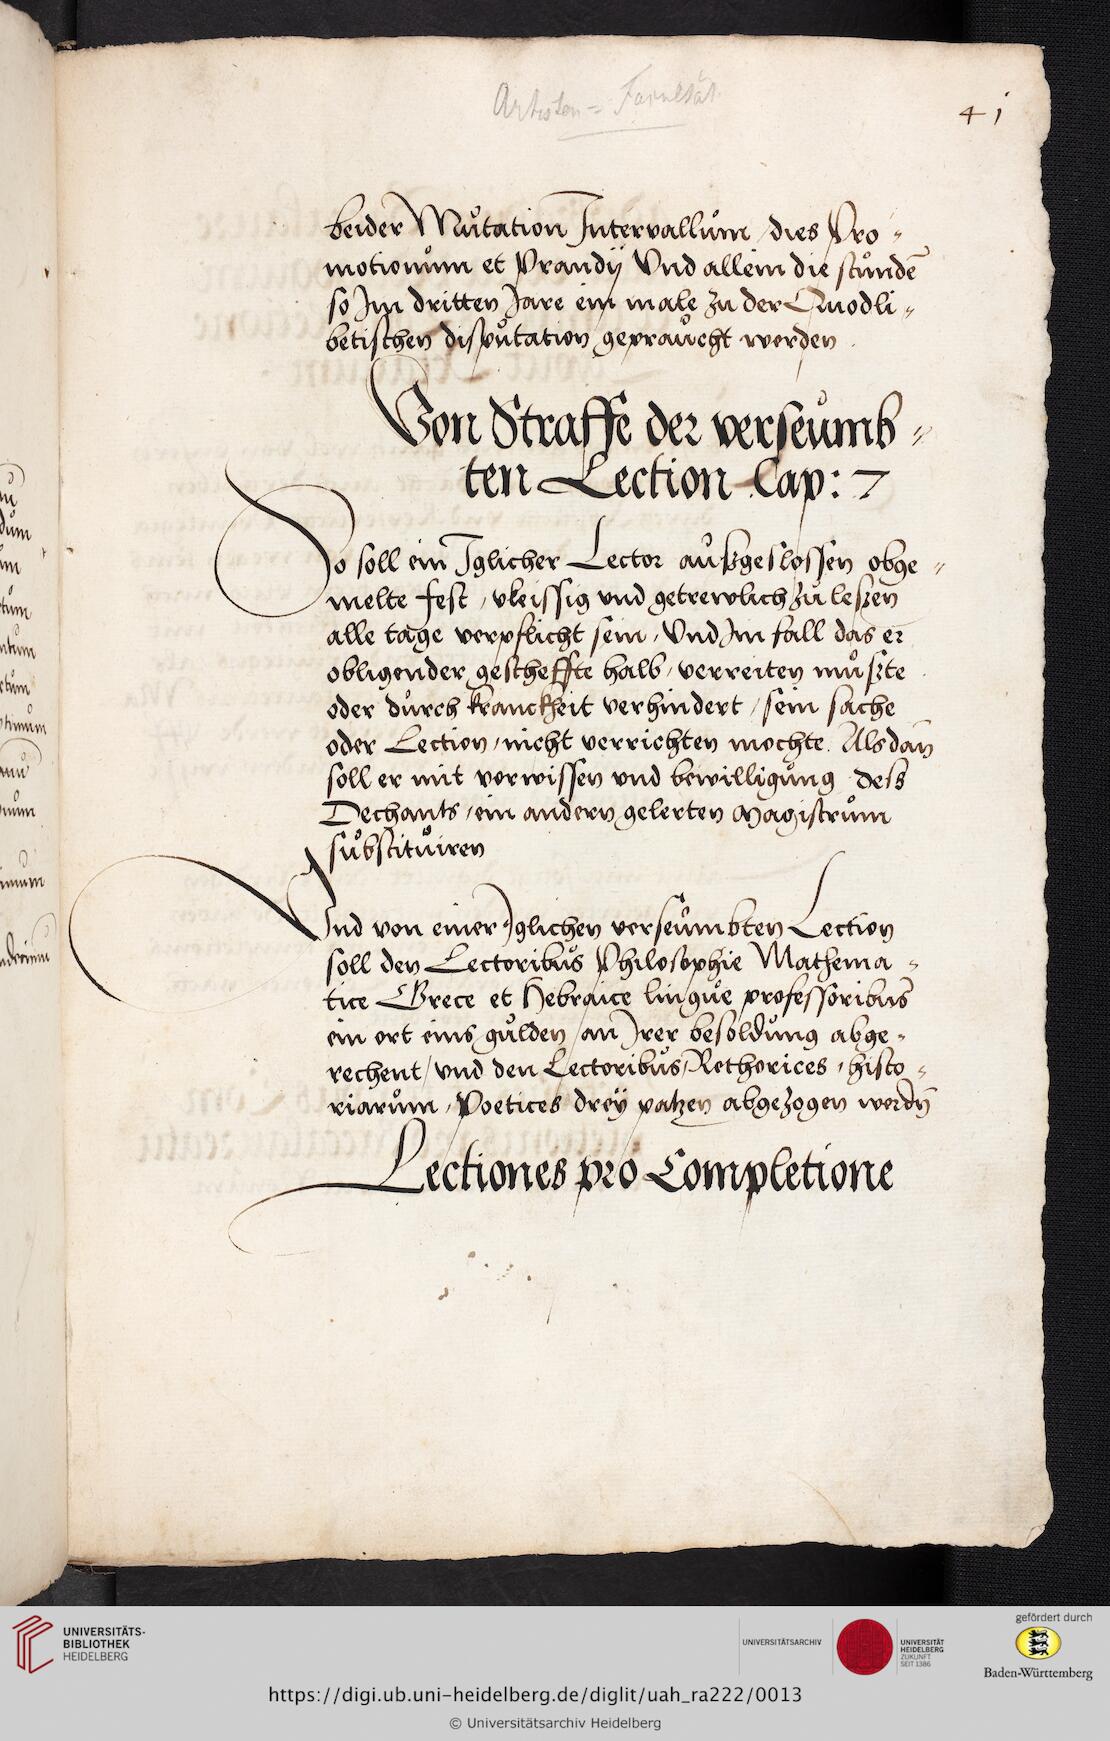 Artisten-Facultät
41
beider Mutation Intervallum / dies Pro-
motionum et Prandij Vnd allein die stunde
so Im dritten Jare ein male zu der Quodli-
betischen disputation gepraucht werden.
Von Straffe der verseumb-
ten Lection Cap: 7
So soll ein Iglicher Lector außgeslossen obge-
melte fest, vleissig vnd getrewlich zu leßen
alle tage verpflicht sein, Vnd Im fall das er
obligender gescheffte halb, verreiten mußte
oder durch kranckheit verhindert, sein sache
oder Lection, nicht verrichten mochte. Als dan
soll er mit vorwissen vnd bewilligung deß
Dechants, ein andern gelerten Magistrum
substituiren
Vnd von einer Iglichen verseumbten Lection
soll den Lectoribus Philosophie Mathema-
tice Grece et Hebraice lingue professoribus
ein ort eins gulden an Irer besoldung abge-
rechent, vnd den Lectoribus, Rethorices, histo-
riarum, Poetices dreÿ patzen abgezogen werdn
Lectiones pro Completione
UNIVERSITÄTS-
BIBLIOTHEK
HEIDELBERG
UNIVERSITÄTSARCHIV
UNIVERSITÄT
HEIDELBERG
ZUKUNFT
SEIT 1386
gefördert durch
Baden-Württemberg
https://digi.ub.uni-heidelberg.de/diglit/uah_ra222/0013
© Universitätsarchiv Heidelberg